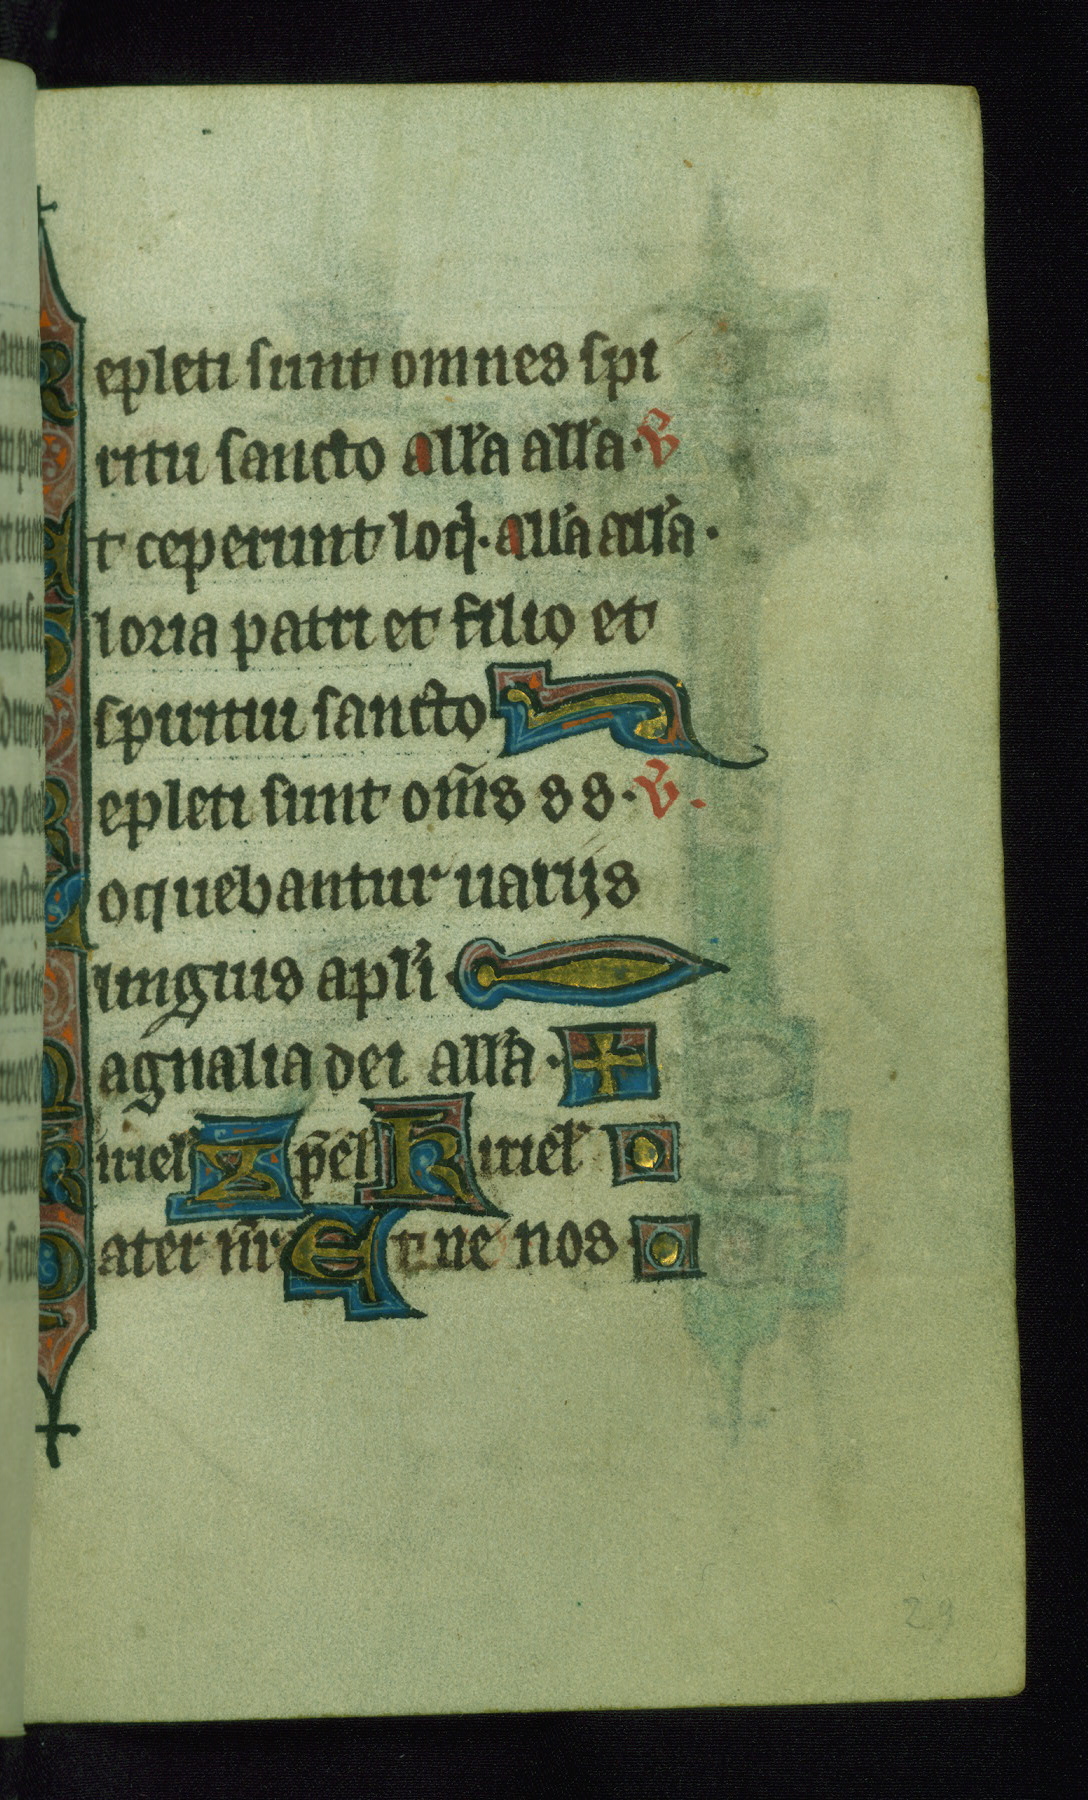 Repleti sunt omnes spi
ritu sancto all'a all'a · V
Et ceperunt loq̇ · all'a all'a ·
Gloria patri et filio et
spiritui sancto
Repleti sunt om̄s s s · V ·
Loquebantur uarijs
linguis apl'i ·
Magnalia dei all'a ·
Kiriel' Xp̄el' Kiriel'
Pater nr̄ Et ne nos
29